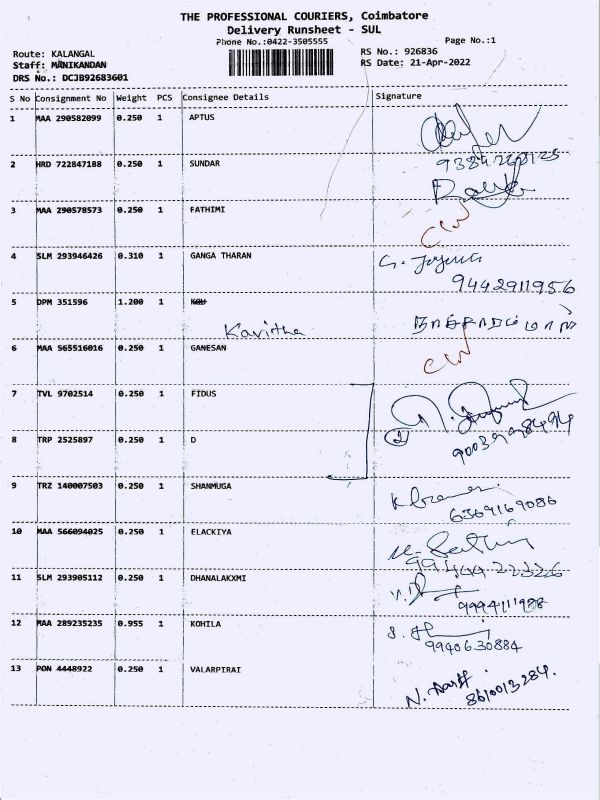 THE PROFESSIONAL COURIERS, Coimbatore
Delivery Runsheet - SUL
Phone No.:0422-3505555
Page No.:1
Route: KALANGAL
RS No.: 926836
Staff: MANIKANDAN
RS Date: 21-Apr-2022
DRS No.: DCJB92683601
S No Consignment No Weight PCS Consignee Details Signature
1 MAA 290582099 0.250 1 APTUS
2 HRD 722847188 0.250 1 SUNDAR
3 MAA 290578573 0.250 1 FATHIMI
4 SLM 293946426 0.310 1 GANGA THARAN
9442911956
5 DPM 351596 1.200 1 KOU
Kavitha
6 MAA 565516016 0.250 1 GANESAN
7 TVL 9702514 0.250 1 FIDUS
8 TRP 2525897 0.250 1 D
2
9 TRZ 140007503 0.250 1 SHANMUGA
6369169086
10 MAA 566094025 0.250 1 ELACKIYA
11 SLM 293905112 0.250 1 DHANALAKXMI
9994111988
12 MAA 289235235 0.955 1 KOHILA
9940630884
13 PON 4448922 0.250 1 VALARPIRAI
8610013284.